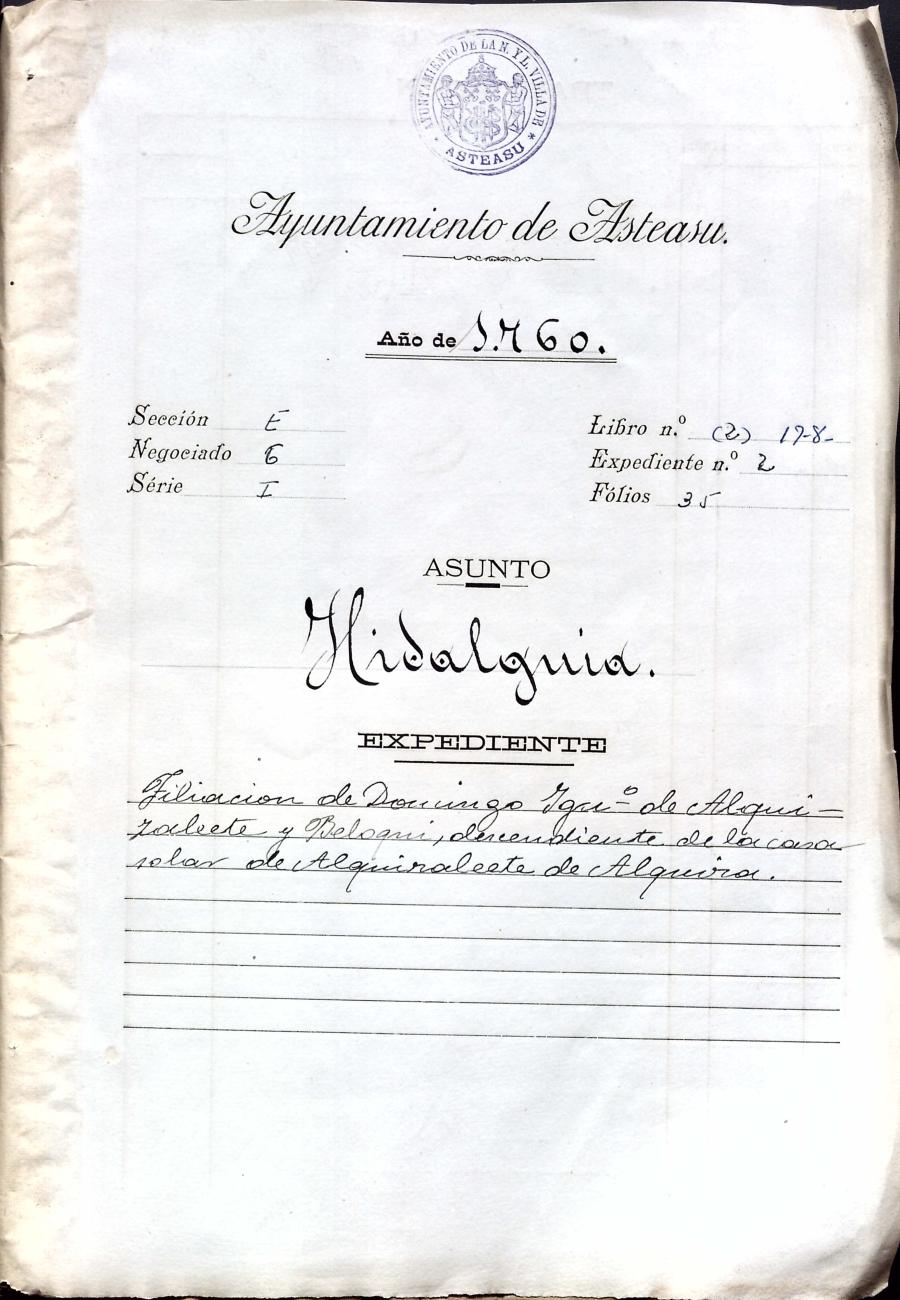 AYUNTAMIENTO DE LA N. Y L. VILLA DE
* ASTEASU *
Ayuntamiento de Asteasu.
Año de 1.760.
Sección E
Negociado 6
Série I
Libro n.º (2) 198-
Expediente n.º 2
Fólios 35
ASUNTO
Hidalguia.
EXPEDIENTE
Filiacion de Domingo Ign.º de Alqui-
zaleete y Beloqui, descendiente de la casa
solar de Alquizaleete de Alquiza.